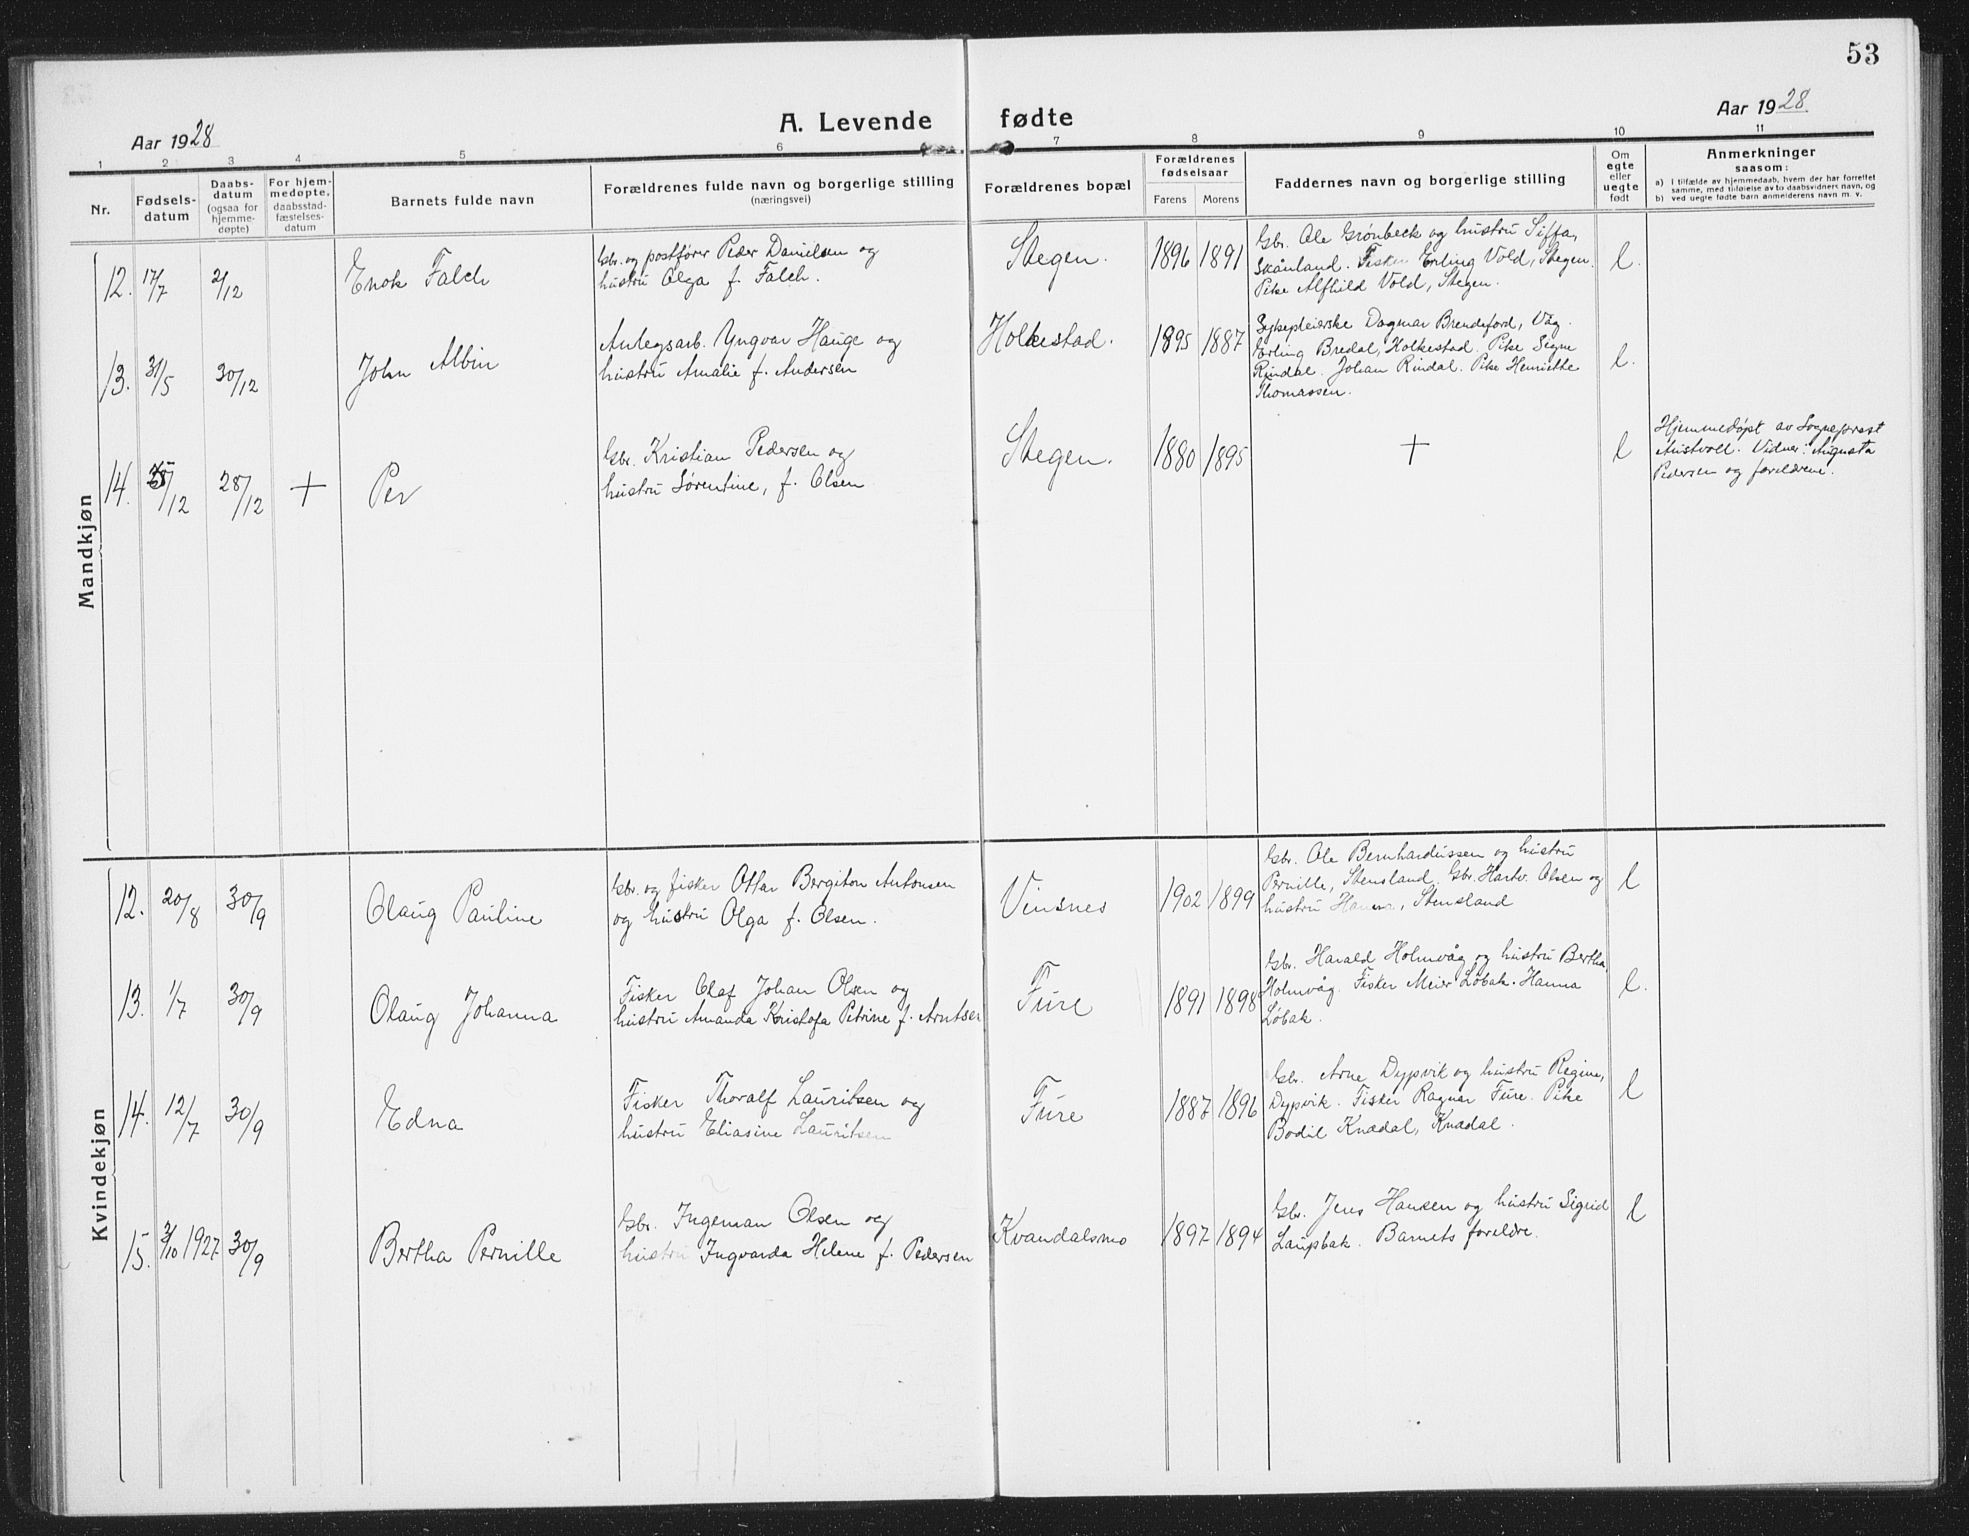 53
Aar 1928
A. Levende fødte
Aar 1928
1 2 3 4 5 6 7 8 9 10 11
Nr.
Fødsels-
datum
Daabs-
datum
(ogsaa for
hjemme-
døpte)
For hjem-
medøpte,
daabsstad-
fæstelses-
datum
Barnets fulde navn
Forældrenes fulde navn og borgerlige stilling
(næringsvei)
Forældrenes bopæl
Forældrenes
fødselsaar
Farens Morens
Faddernes navn og borgerlige stilling
Om
egte
eller
uegte
født
Anmerkninger
saasom:
a) I tilfælde av hjemmedaab, hvem der har forrettet
samme, med tilføielse av to daabsvidners navn, og
b) ved uegte fødte barn anmelderens navn m. v.
Mandkjøn
12. 17/7 2/12 Enok Falch
Gbr. og postfører Peder Danielsen og
hustru Olga f. Falch.
Stegen. 1896 1891
Gbr. Ole Grønbeck og hustru Siffa,
Skånland. Fisker Erling Vold, Stegen.
Pike Alfhild Vold, Stegen.
l.
13. 31/5 30/12 John Albin
Anlegsarb. Yngvar Hauge og
hustru Amalie f. Andersen
Holkestad. 1895 1887
Sykepleierske Dagmar Brendeford, Våg.
Erling Bredal, Holkestad. Pike Signe
Rindal. Johan Rindal. Pike Henriette
Thomassen.
l.
14. /12 28/12 + Per
Gbr. Kristian Pedersen og
hustru Sørentine, f. Olsen
Stegen. 1880 1895
+
l
Hjemmedøpt av Sogneprest
Austvoll. Vidner: Augusta
Pedersen og foreldrene.
Kvindekjøn
12. 20/8 30/9 Olaug Pauline
Gbr. og fisker Ottar Bergiton Antonsen
og hustru Olga f. Olsen.
Vinsnes 1902 1899
Gbr. Ole Bernhardussen og hustru
Pernille, Stensland. Gbr. Hartv. Olsen og
hustru , Stensland
l
13. 1/7 30/9 Olaug Johanna
Fisker Olaf Johan Olsen og
hustru Amanda Kristofa Petrine f. Arntsen
Fure 1891 1898
Gbr. Harald Holmvåg og hustru Bertha
Holmvåg. Fisker Meier Løbak. Hanna
Løbak.
l.
14. 12/7 30/9 Edna
Fisker Thoralf Lauritsen og
hustru Eliasine Lauritsen
Fure 1887 1896
Gbr. Arne Dypvik og hustru Regine,
Dypvik. Fisker Ragnar Fure. Pike
Bodil Knædal, Knædal.
l
15. 2/10 1927 30/9 Bertha Pernille
Gbr. Ingeman Olsen og
hustru Ingvarda Helene f. Pedersen
Kvandalsmo 1897 1894
Gbr. Jens Hansen og hustru Sigrid
Laupbak. Barnets foreldre.
l